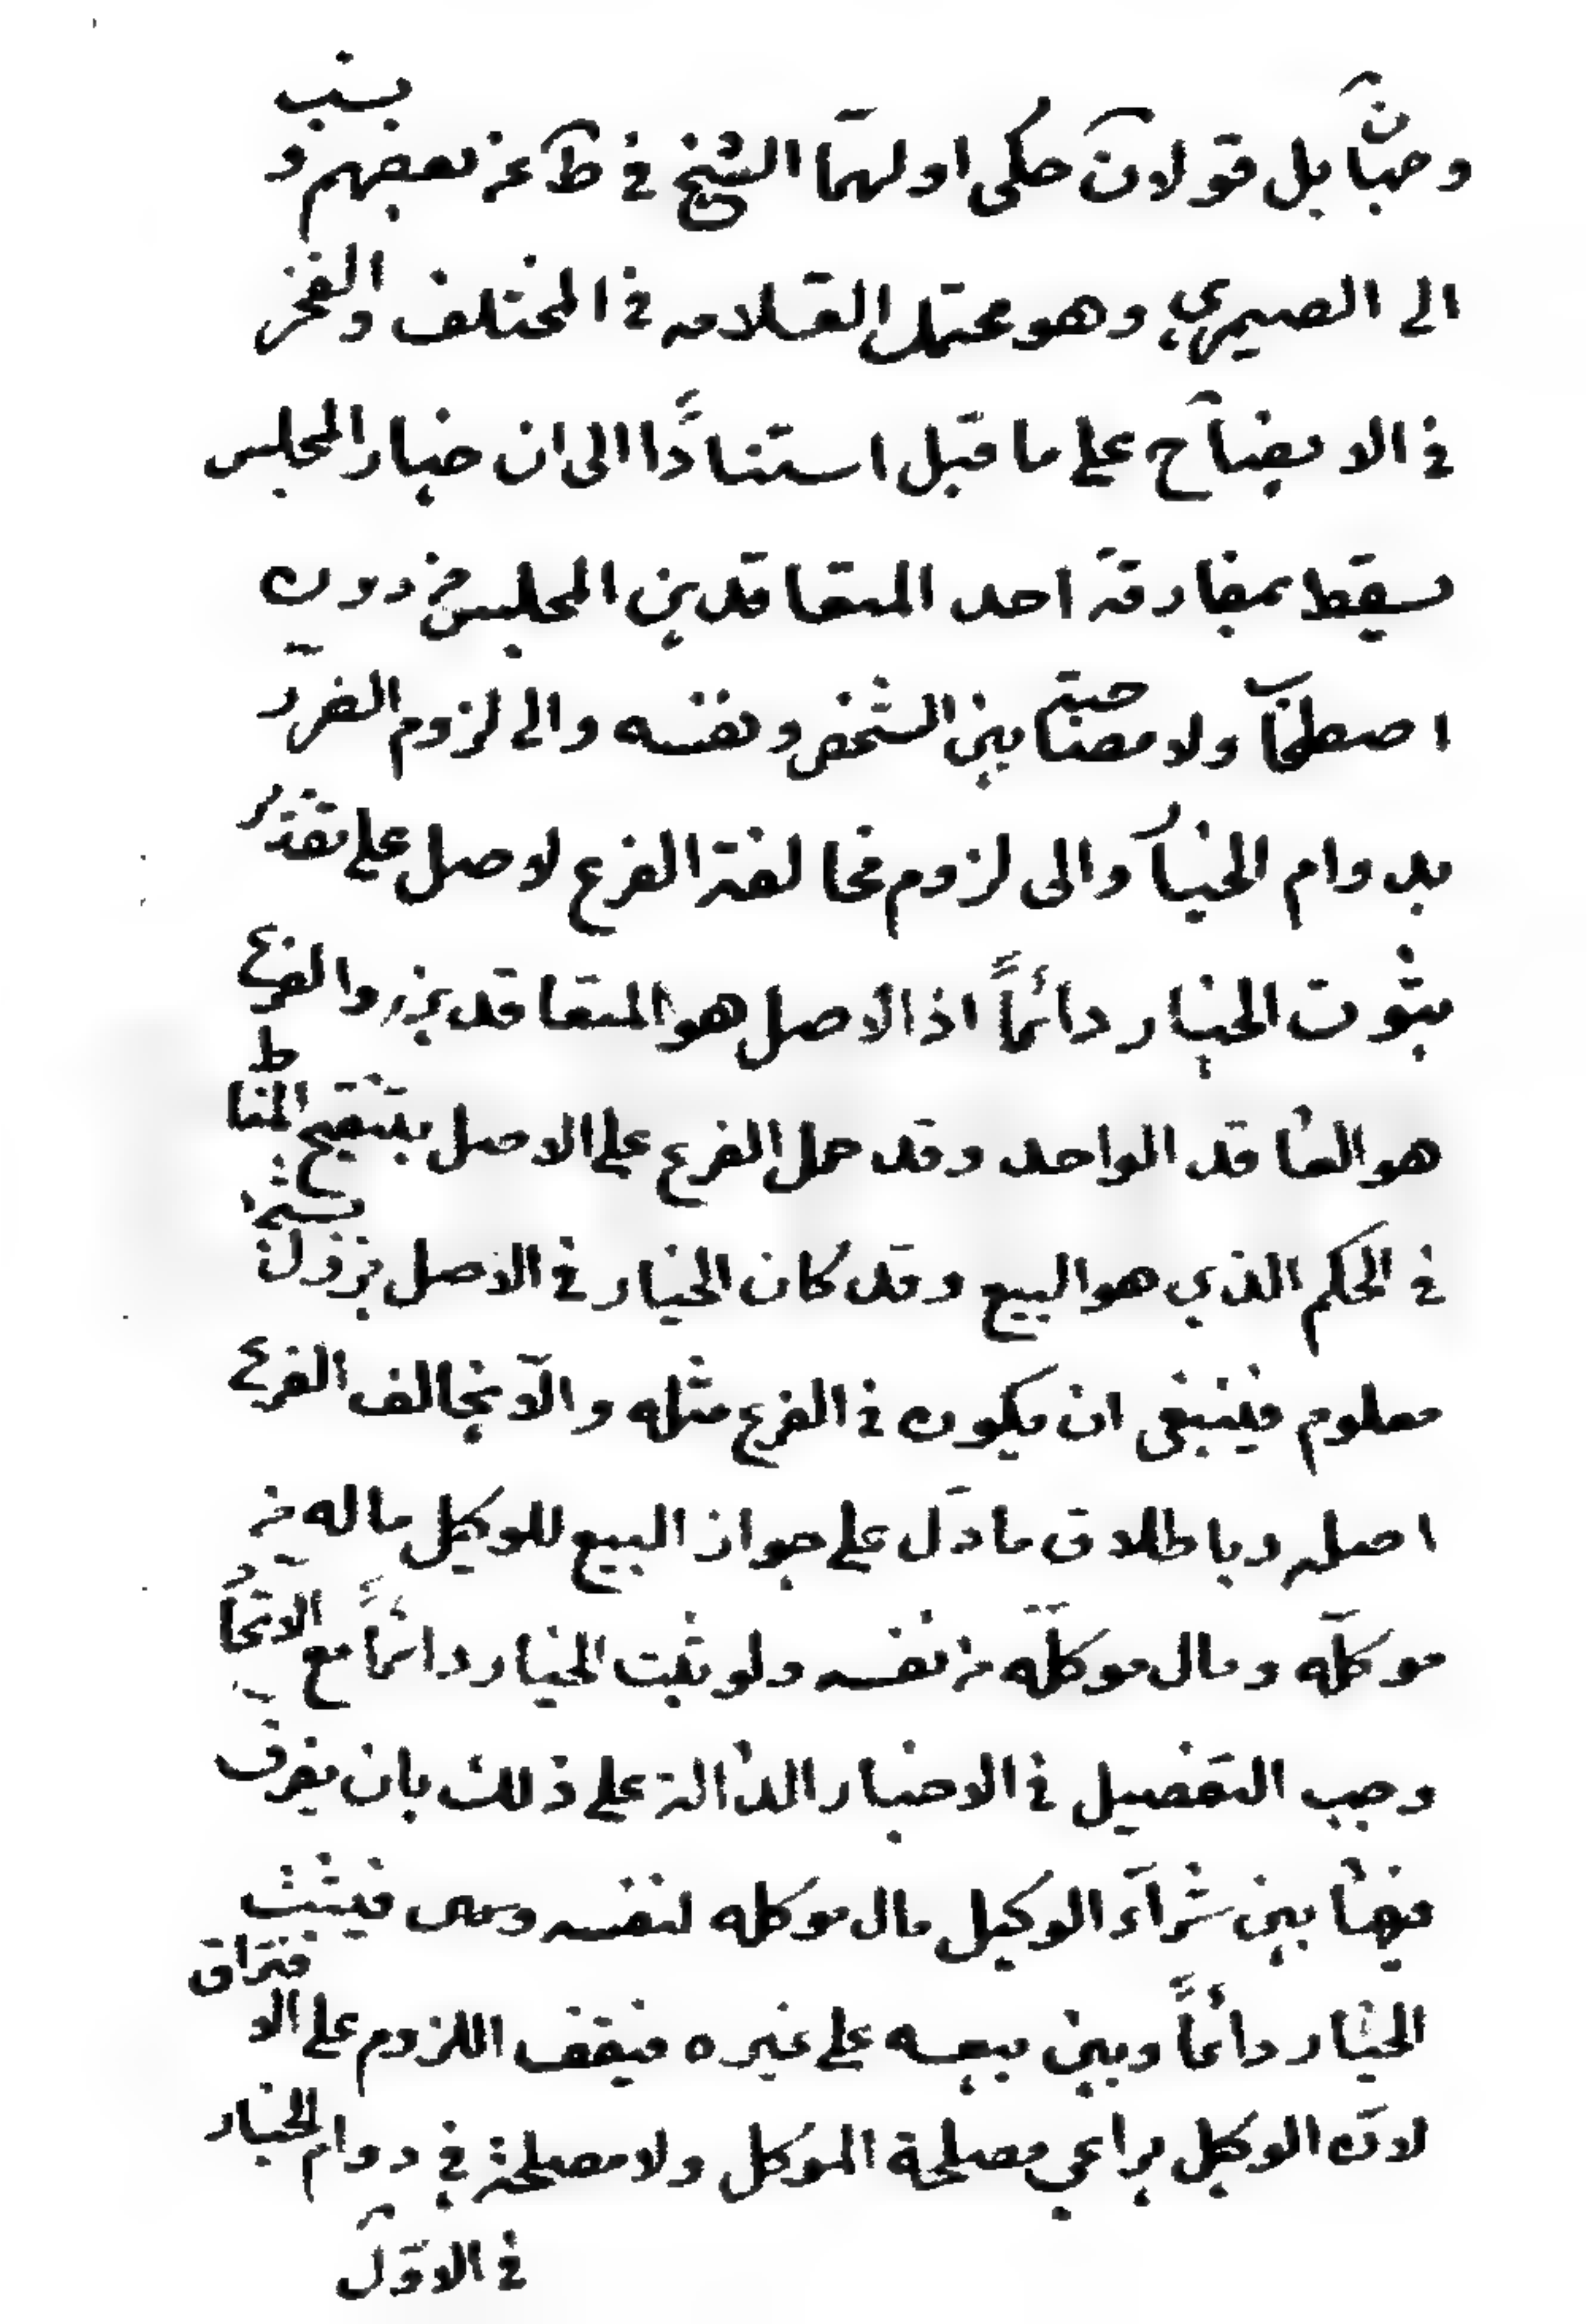 وجهان بل قولان حكى اولهما الشيخ في ط عن بعضهم و ينسب
الى الصيمري وهو محتمل العلامه في المختلف والفخر
في الايضاح على ما قيل استنادًا الى ان خيار المجلس
يسقط بمفارقة احد المتعاقدين المجلس من دون
اصطحاب ولا مصاحبة بين الشخص ونفسه والى لزوم الضرر
بدوام الخيار والى لزوم مخالفة الفرع لاصل على تقدير
ثبوت الخيار دائمًا اذ الاصل هو المتعاقدين والفرع
هو العاقد الواحد وقد حمل الفرع على الاصل بتنقيح المناط
في الحكم الذي هو البيع وقد كان الخيار في الاصل يزول بشيء
معلوم فينبغي ان يكون في الفرع مثله والّا يخالف الفرع
اصله وباطلاق ما دلّ على جواز البيع للوكيل ماله من
موكلّه ومال موكلّه من نفسه ولو ثبت الخيار دائمًا مع الاتحاد
وجب التفصيل في الاخبار الدالة على ذلك بان يفرق
فيها بين شراء الوكيل مال موكله لنفسه فيثبت
الخيار دائمًا وبين بيعه على غيره فيقف اللزوم على الافتراق
لانّ الوكيل يراعي مصلحة الموكل ولا مصلحة في دوام الخيار
في الاوّل